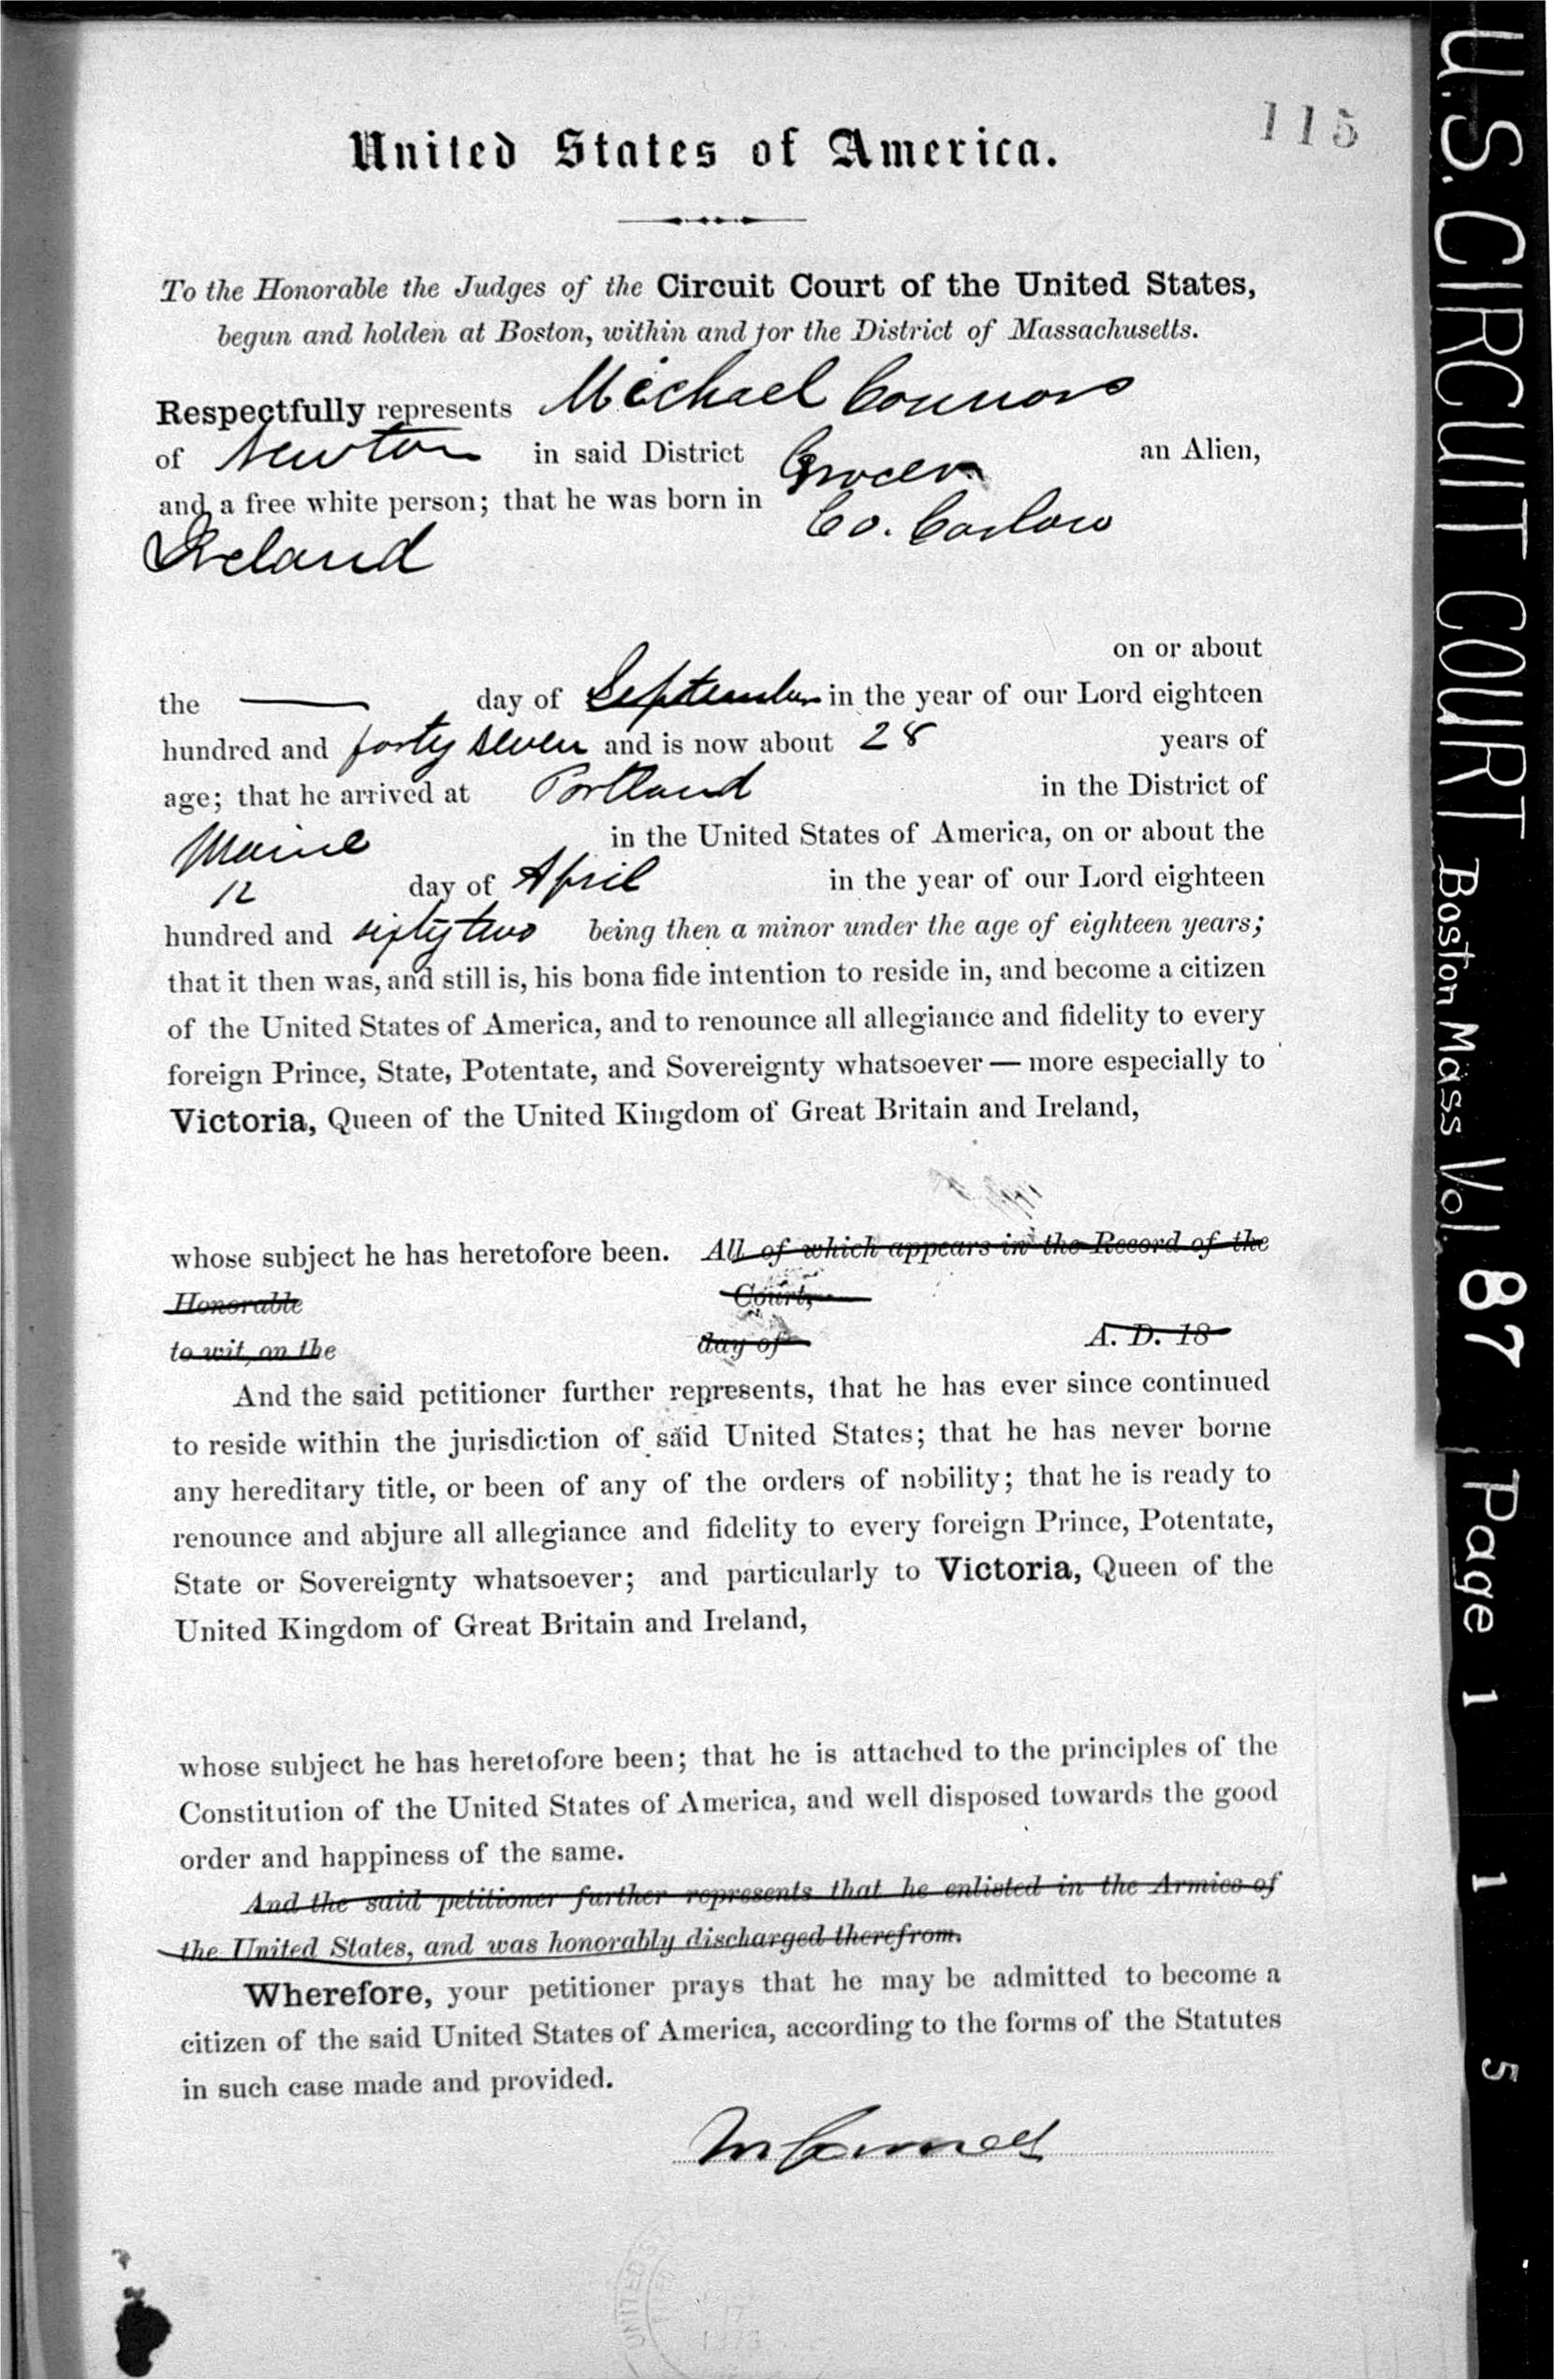 115
United States of America.
To the Honorable the Judges of the Circuit Court of the United States,
begun and holden at Boston, within and for the District of Massachusetts.
Respectfully represents Michael Connors
of Newton in said District Grocer an Alien,
and a free white person; that he was born in Co. Carlow
Ireland
on or about
the — day of September in the year of our Lord eighteen
hundred and forty seven and is now about 28 years of
age; that he arrived at Portland in the District of
Maine in the United States of America, on or about the
12 day of April in the year of our Lord eighteen
hundred and sixty two being then a minor under the age of eighteen years;
that it then was, and still is, his bona fide intention to reside in, and become a citizen
of the United States of America, and to renounce all allegiance and fidelity to every
foreign Prince, State, Potentate, and Sovereignty whatsoever — more especially to
Victoria, Queen of the United Kingdom of Great Britain and Ireland,
whose subject he has heretofore been. All of which appears in the Record of the
Honorable Court,
to wit, on the day of A. D. 18
And the said petitioner further represents, that he has ever since continued
to reside within the jurisdiction of said United States; that he has never borne
any hereditary title, or been of any of the orders of nobility; that he is ready to
renounce and abjure all allegiance and fidelity to every foreign Prince, Potentate,
State or Sovereignty whatsoever; and particularly to Victoria, Queen of the
United Kingdom of Great Britain and Ireland,
whose subject he has heretofore been; that he is attached to the principles of the
Constitution of the United States of America, and well disposed towards the good
order and happiness of the same.
And the said petitioner further represents that he enlisted in the Armies of
the United States, and was honorably discharged therefrom.
Wherefore, your petitioner prays that he may be admitted to become a
citizen of the said United States of America, according to the forms of the Statutes
in such case made and provided.
U.S. CIRCUIT COURT Boston Mass Vol. 87 Page 1 1 5